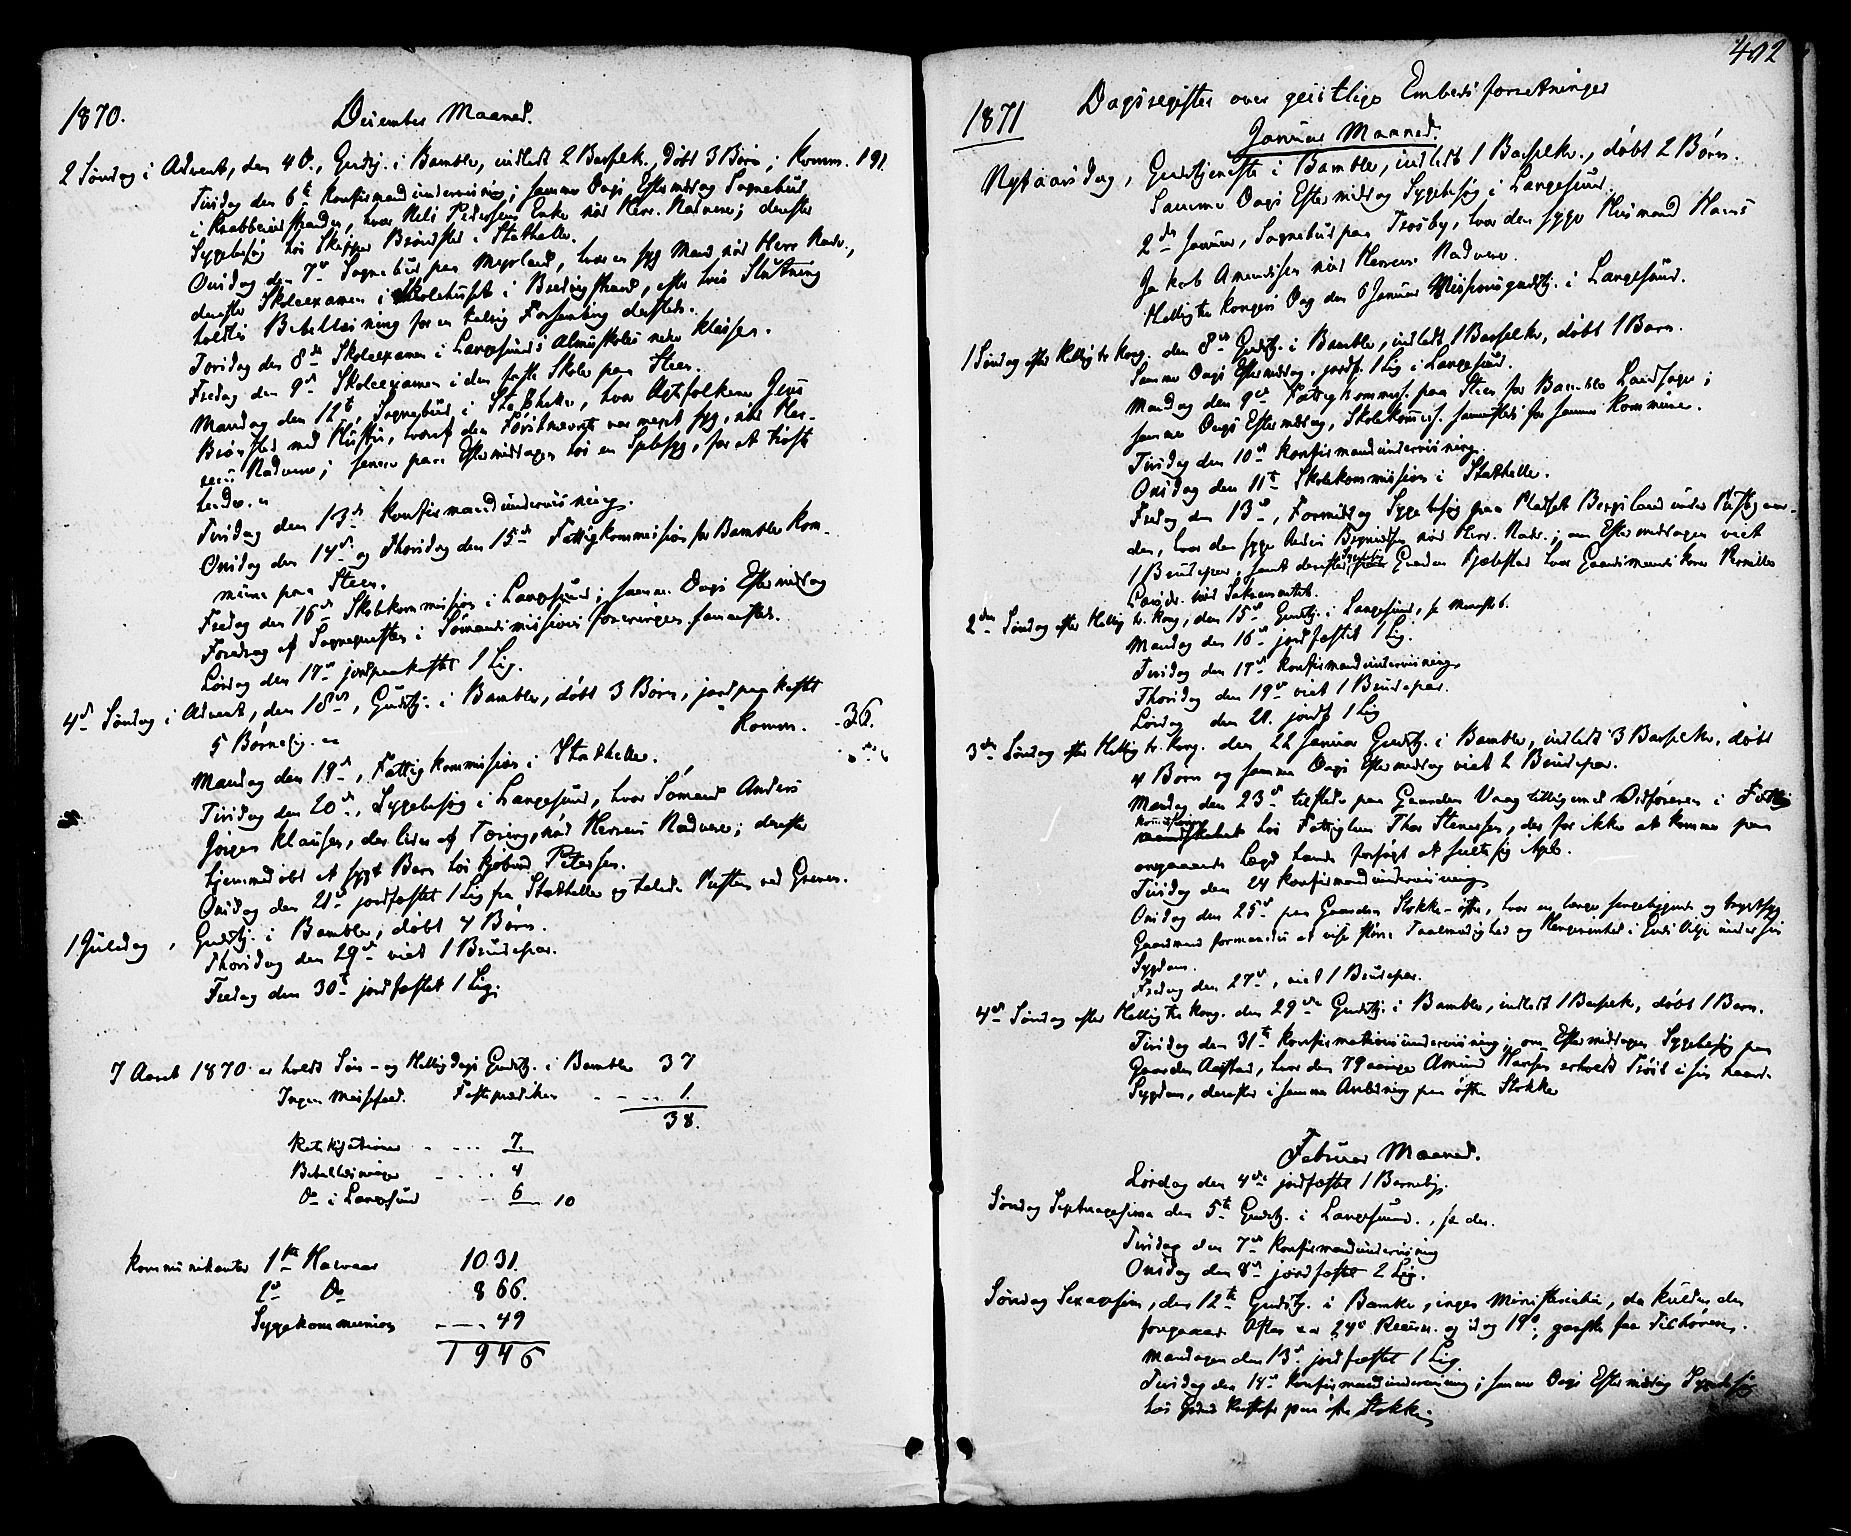 1870.
December Maaned.
2 Søndag i Advent, den 4d., Gudstj. i Bamble, indledt 2 Barselk., døbt 3 Børn; Komm. 191.
Tirsdag den 6t Konfirmandundervisning; samme Dags Eftermiddag Sognebud
i Krabberødstranden, hvor Nels Pedersens Enke nød Herr. Nadvere; derefter
Sygebesøg hos Skipper Brønsted i Stathelle.
Onsdag den 7de Sognebud paa Myrland, hvor en syg Mand nød Herr. Nadv.,
derefter Skoleexamen i Skolehuset i Bredvigstrand, efter hvis Slutning
holdtes Bibellæsning for en talrig Forsamling dersteds.
Torsdag den 8de Skoleexamen i Langesunds Almueskoles nedre Klasser.
Fredag den 9de Skoleexamen i den faste Skole paa Steen.
Mandag den 12t, Sognebud i Stathelle, hvor Ægtefolkene Jens
Brønsted med Hustru, hvoraf den Førstnævnte var meget syg, nød Her-
rens Nadvere; senere paa Eftermiddagen hos en Syg, for at trøste
hende.
Tirsdag den 13de Konfirmandundervisning.
Onsdag den 14de og Thorsdag den 15de Fattigkommission for Bamble Kom-
mune paa Steen.
Fredag den 16de Skolekommission i Langesund; samme Dags Eftermiddag
Foredrag af Sognepresten i Sømandsmissions foreningen sammesteds.
Lørdag den 17de jordpaakastet 1 Lig.
4de Søndag i Advent, den 18de, Gudstj. i Bamble, døbt 3 Børn, jordpaakastet
5 Børnelig. Komm. 36.
Mandag den 19de, Fattigkommission i Stathelle.
Tirsdag den 20de, Sygebesøg i Langesund, hvor Sømand Anders
Jørgen Klausen, der lider af Tæring, nød Herrens Nadvere; derefter
hjemmedøbt et sygt Barn hos Petersen.
Onsdag den 21de jordfæstet 1 Lig fra Stathelle og talede Presten ved Graven.
1 Juledag, Gudstj. i Bamble, døbt 4 Børn.
Thorsdag den 29de viet 1 Brudepar.
Fredag den 30t jordfæstet 1 Lig.
I Aaret 1870 er holdt Søn- og Helligdags Gudstj. i Bamble 37
Ingen Messefald. Fasteprædiken 1.
38.
Katekisationer 7.
Bibellæsninger 4
Do i Langesund 6 10
Kommunikanter 1ste Halvaar 1031.
2d Do 866.
Sygekommunion 49
1946
402
1871
Dagsregister over geistlige Embedsforretninger
Januar Maaned.
Nytaarsdag, Gudstjeneste i Bamble, indledt 1 Barselk., døbt 2 Børn.
Samme Dags Eftermiddag Sygebesøg i Langesund.
2den Januar, Sognebud paa Trosby, hvor den syge Husmand Hans
Jakob Amundsen nød Herrens Nadvere.
Hellig tre Kongers Dag den 6 Januar Missionsgudstj. i Langesund.
1 Søndag efter Hellig tr. Kong. den 8de Gudstj. i Bamble, indledt 1 Barselk., døbt 1 Barn.
Samme Dags Eftermiddag, jordf. 1 Lig i Langesund.
Mandag den 9de Fattigkommiss. paa Steen for Bamble Landsogn;
samme Dags Eftermiddag, Skolekommiss. sammesteds for samme Kommune.
Tirsdag den 10de Konfirmandundervisning.
Onsdag den 11t Skolekommission i Stathelle.
Fredag den 13de, Formiddag Sygebesøg paa Pladset Bergsland under Prestegaar-
den, hvor den syge Anders nød Herr. Nadv.; om Eftermiddagen viet
1 Brudepar, samt derefter Sygebesøg paa Gaarden hvor Gaardmandskone
nød Sakramentet.
2den Søndag efter Hellig tr. Kong, den 15de Gudstj. i Langesund, se
Mandag den 16de jordfæstet 1 Lig.
Tirsdag den 17de Konfirmandundervisning.
Thorsdag den 19de viet 1 Brudepar.
Lørdag den 21. jordf. 1 Lig
3die Søndag efter Hellig tr. Kong. den 22 Januar Gudstj. i Bamble, indledt 3 Barselk., døbt
4 Børn og samme Dags Eftermiddag viet 2 Brudepar.
Mandag den 23de tilstede paa Gaarden Vraag tilligemed Ordføreren i Fattig-
kommissionen hos Fattiglem Thor Stenersen, der for ikke at komme paa
omgaaende Lægd havde forsøgt at
Tirsdag den 24 Konfirmandundervisning
Onsdag den 25de paa Gaarden Stokke-østre, hvor en længe sengeliggende og brystsyg
Gaardmand formanedes at vise større Taalmodighed og Hengivenhed i Guds Vilje under sin
Sygdom.
Fredag den 27de, viet 1 Brudepar.
4de Søndag efter Hellig tre Kong. den 29de Gudstj. i Bamble, indledt 1 Barselk., døbt 1 Barn.
Tirsdag den 31t Konfirmationsundervisning; om Eftermiddagen Sygebesøg paa
Gaarden, hvor den 79 aarige Amund Hansen erholdt Trøst i sin haarde
Sygdom, derefter i samme Anledning paa østre Stokke
Februar Maaned.
Lørdag den 4de jordfæstet 1 Barnelig.
Søndag Septuagesima den 5t Gudstj. i Langesund., se der.
Tirsdag den 7de Konfirmandundervisning
Onsdag den 8de jordfæstet 2 Lig.
Søndag Sexagesima, den 12te Gudstj. i Bamble, ingen Ministerialia, da Kulden den
foregaaende Aften var 24° Reaum. og idag 19°; ganske faa Tilhørere.
Mandagen den 13de jordfæstet 1 Lig.
Tirsdag den 14de Konfirmandundervisning; samme Dags Eftermiddag Sygebesøg
hos paa østre Stokke